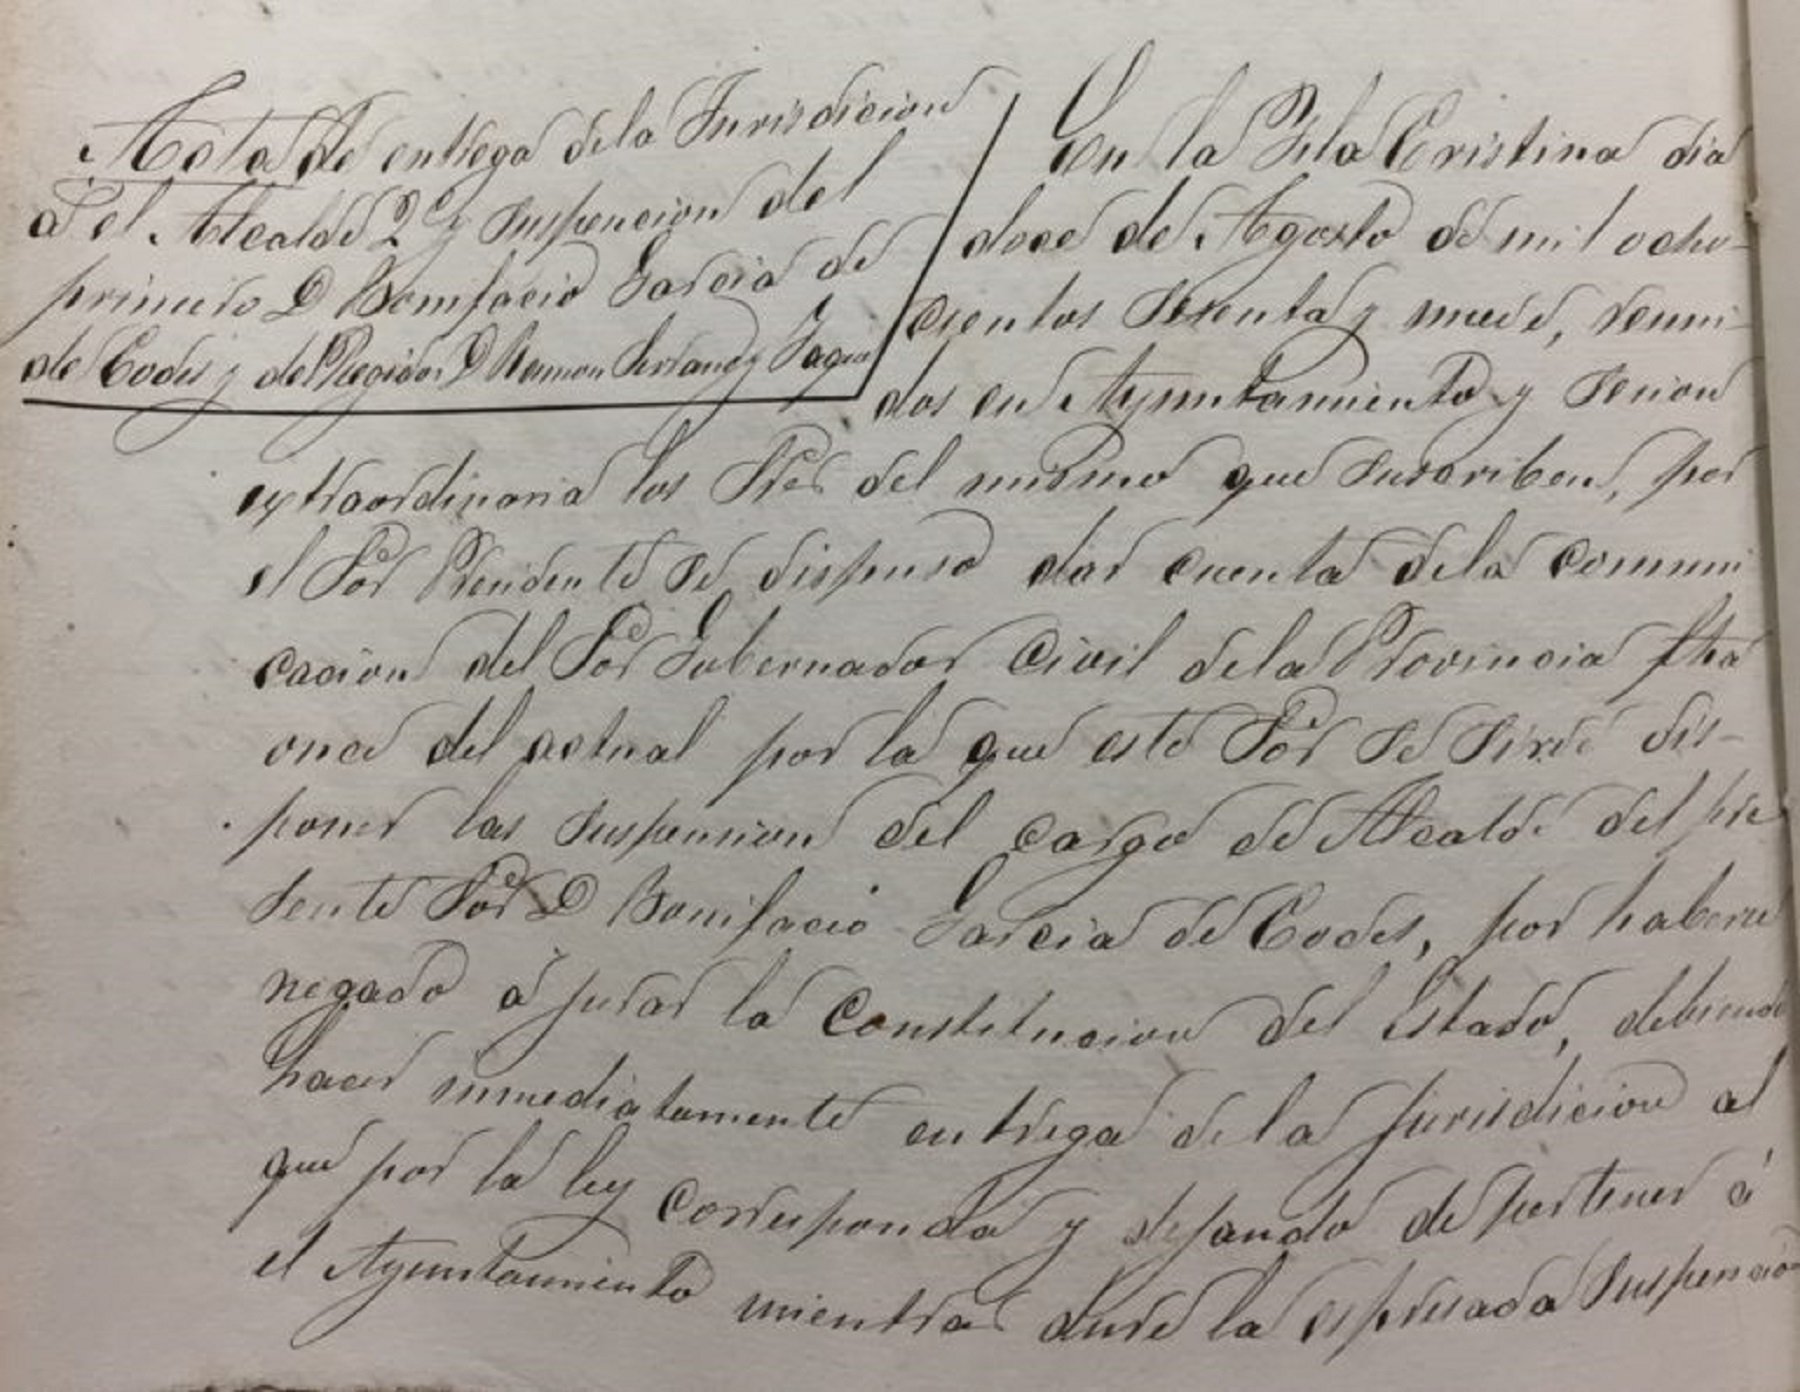 Acta de entrega dela Jurisdicion
á el Alcalde 2º y suspencion del
primero D Bonifacio Garcia de
de Codes y del Regidor D Ramon Serrano y
En la Isla Cristina dia
doce de Agosto de mil ocho-
cientos sesenta y nueve, reuni-
dos en Ayuntamiento y secion
extraordinaria los Sres del mismo que suscriben, por
el Sor Precidente se dispuso dar cuenta dela comuni
cacion del Sor Gobernador Civil dela Provincia fha
once del actual por la que este Sor se sirve dis-
poner las suspension del cargo de Alcalde del pre
sente Sor D Bonifacio Garcia de Codes, por haberse
negado á jurar la Constitucion del Estado, debiendo
hacer inmediatamente entrega de la jurisdicion al
que por la ley corresponda y dejando de pertener á
el Ayuntamiento mientras dure la espresada suspencion